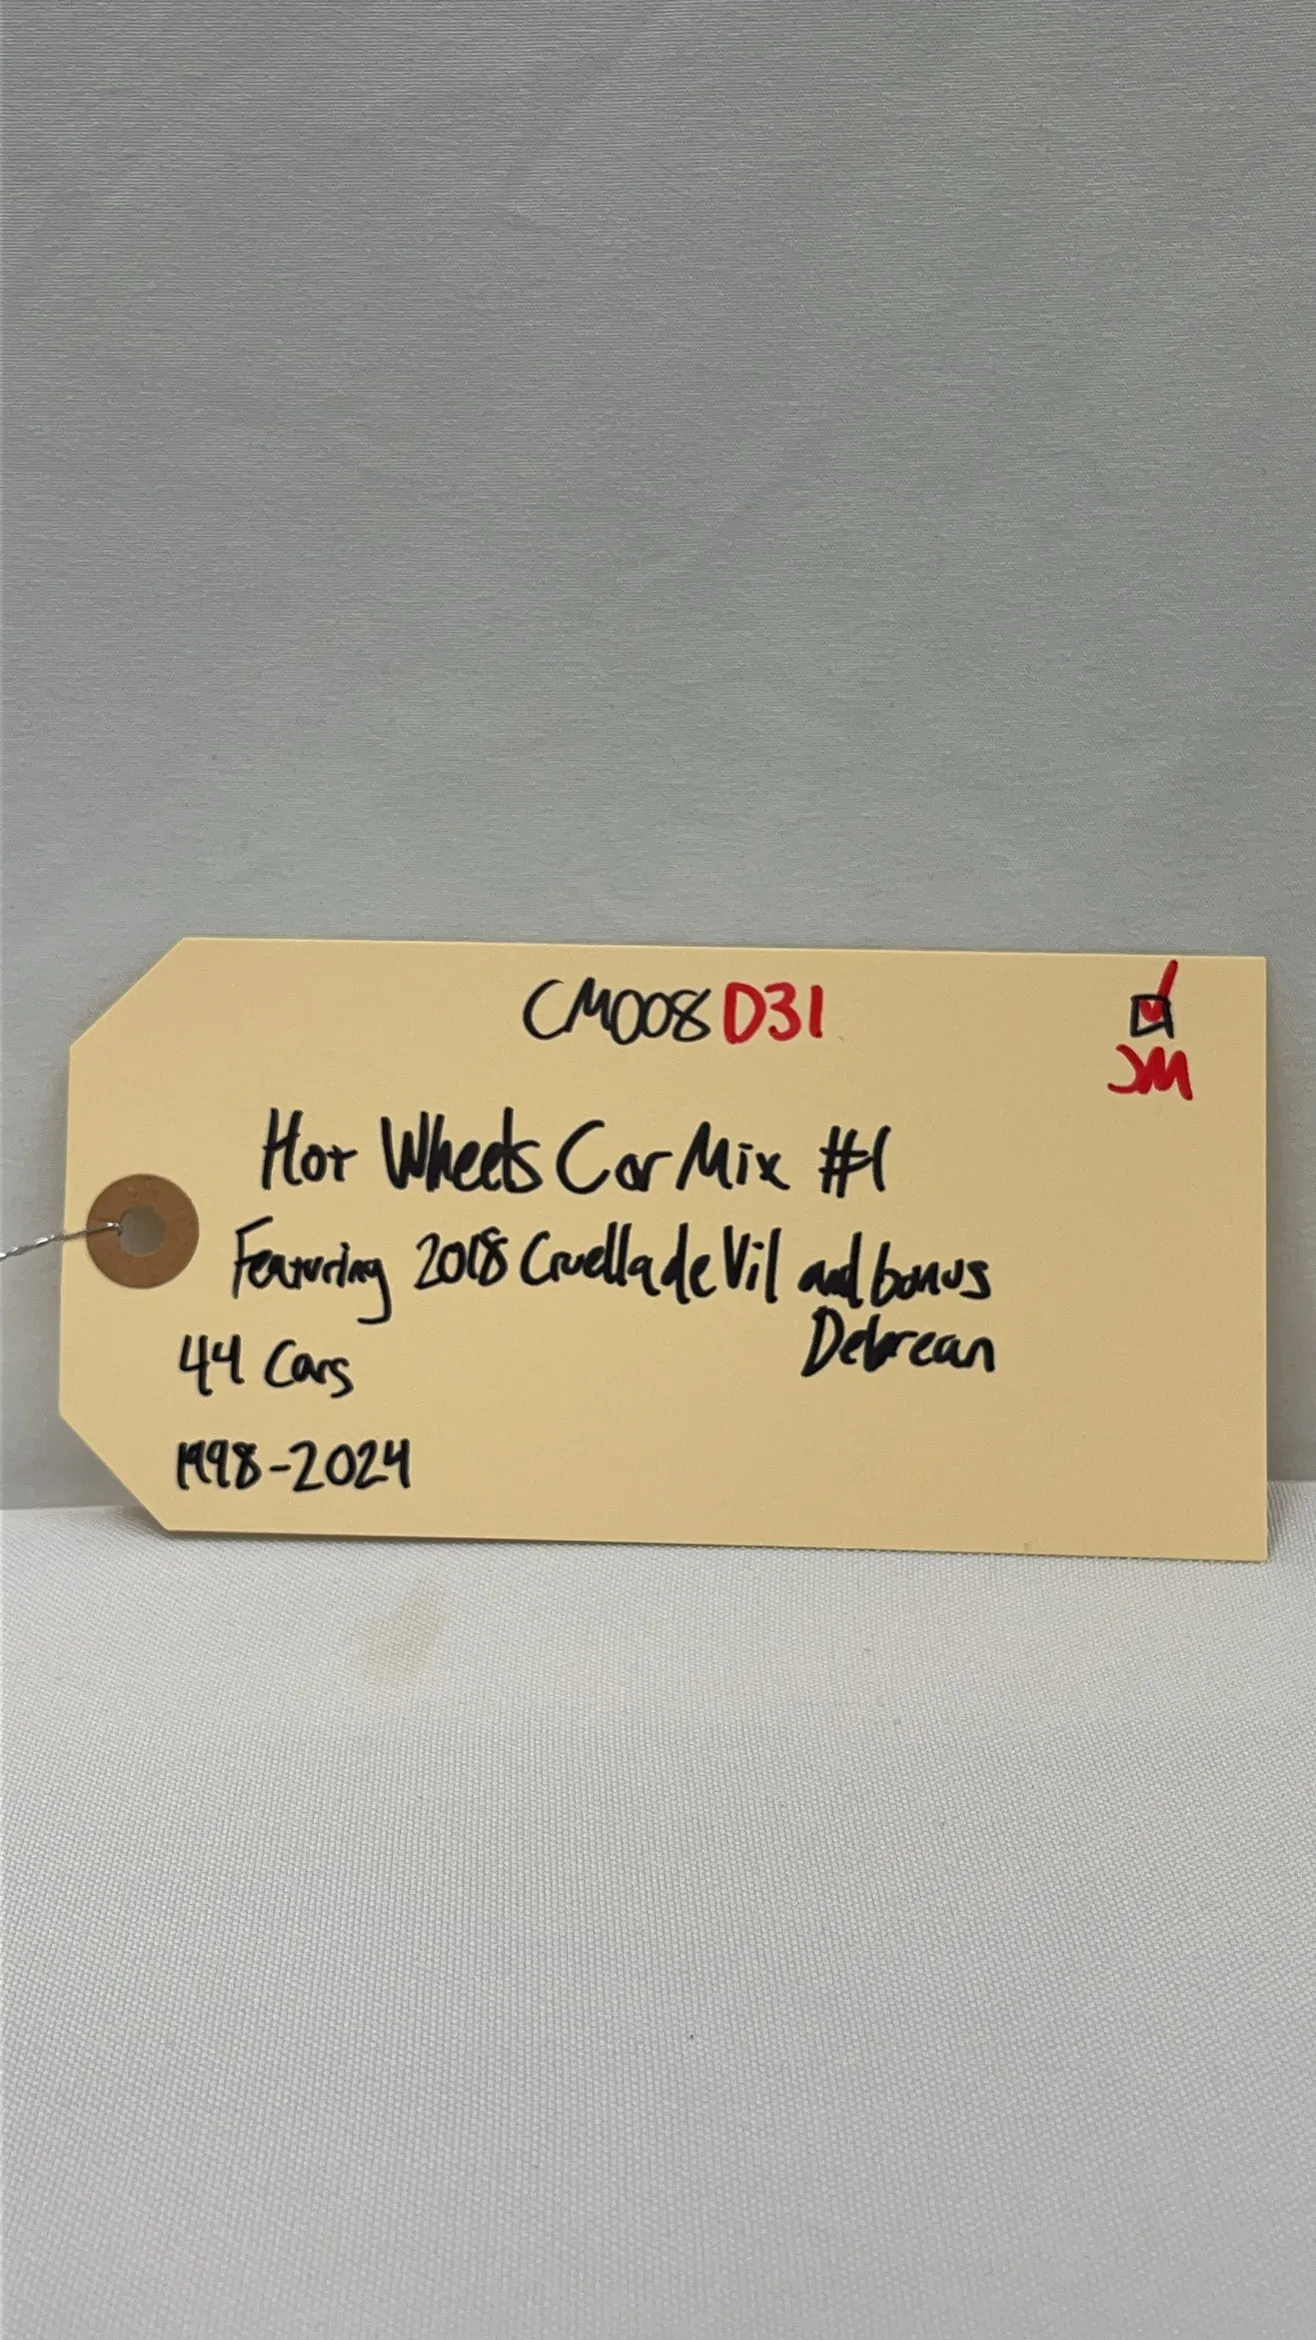 CM008 D31
JM
Hot Wheels Car Mix #1
Featuring 2018 Cruella de Vil and bonus
Delorean
44 Cars
1998-2024